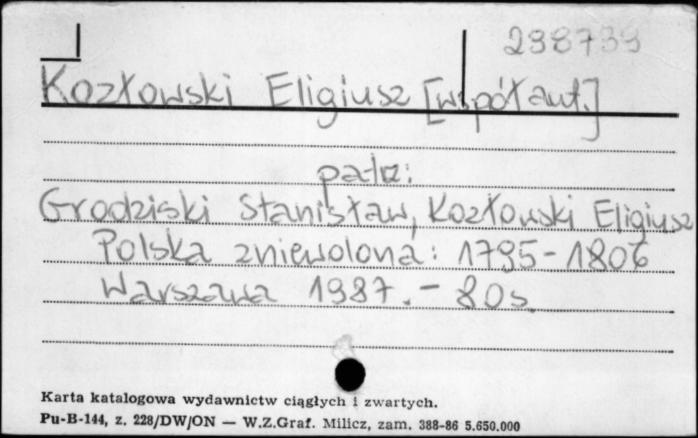 298739
Kozłowski Eligiusz [współaut.]
patrz:
Grodziski Stanisław, Kozłowski Eligiusz
Polska zniewolona: 1795-1806
Warszawa 1987. - 80 s.
Karta katalogowa wydawnictw ciągłych i zwartych.
Pu-B-144, z. 228/DW/ON — W.Z.Graf. Milicz, zam. 388-86 5.650.000